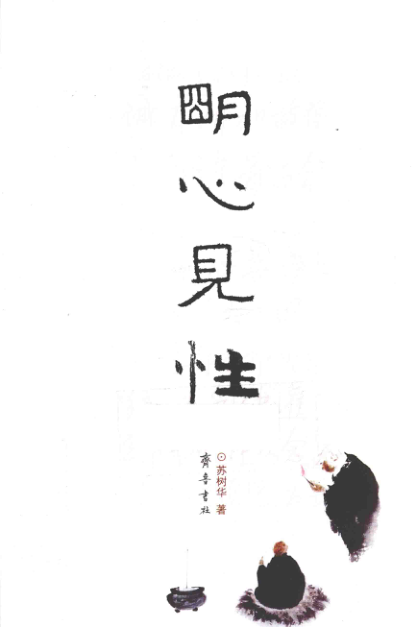 明心見性
⊙苏树华 著
齊鲁书社